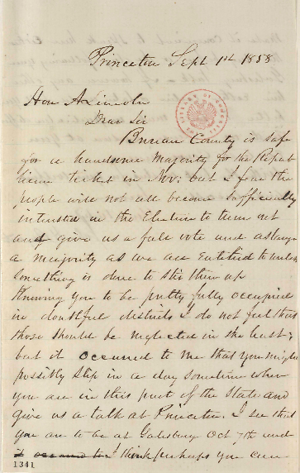 Princeton Sept 1st 1858
Hon A Lincoln
Dear Sir
Bureau County is safe
for a handsome majority for the Repub
lican ticket in Nov: but I fear the
people will not all become sufficiently
interested in the Election to turn out
and give us a full vote and as large
a majority as we are entitled to unless
something is done to stir them up
Knowing you to be pretty fully occupied
in doubtful districts I do not feel that
those should be neglected in the least;
but it occurred to me that you might
possibly step in a day sometime when
you are in this part of the State and
give us a talk at Princeton. I see that
you are to be at Galesburg Oct 7th and
I think perhaps you can
1341